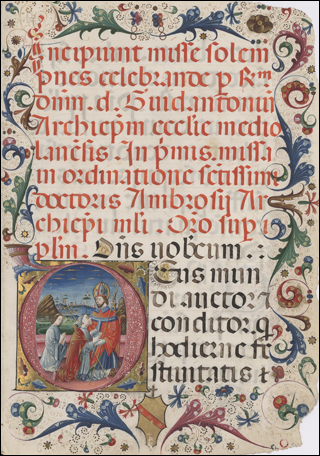 Incipiunt misse solem
pnes celebrande p Rm
dnm. d. Guidantoniũ
Archiepm ecclie medio
lanensis. In pmis. missa
in ordinatione sctissimi
doctoris Ambrosij Ar
chiepi mli. Oro sup i
plm. Dns uobcum.
Eus mun
di auctor ⁊
conditor. q
hodierne fe
stiuitatis ⁊